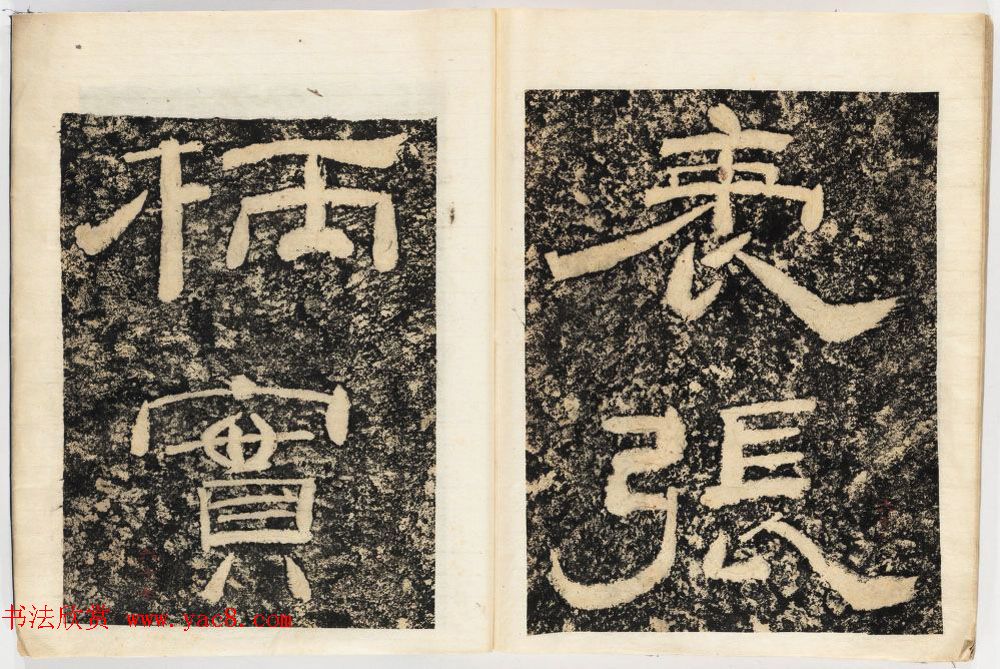 張
柄
實
书法欣赏 www.yac8.com